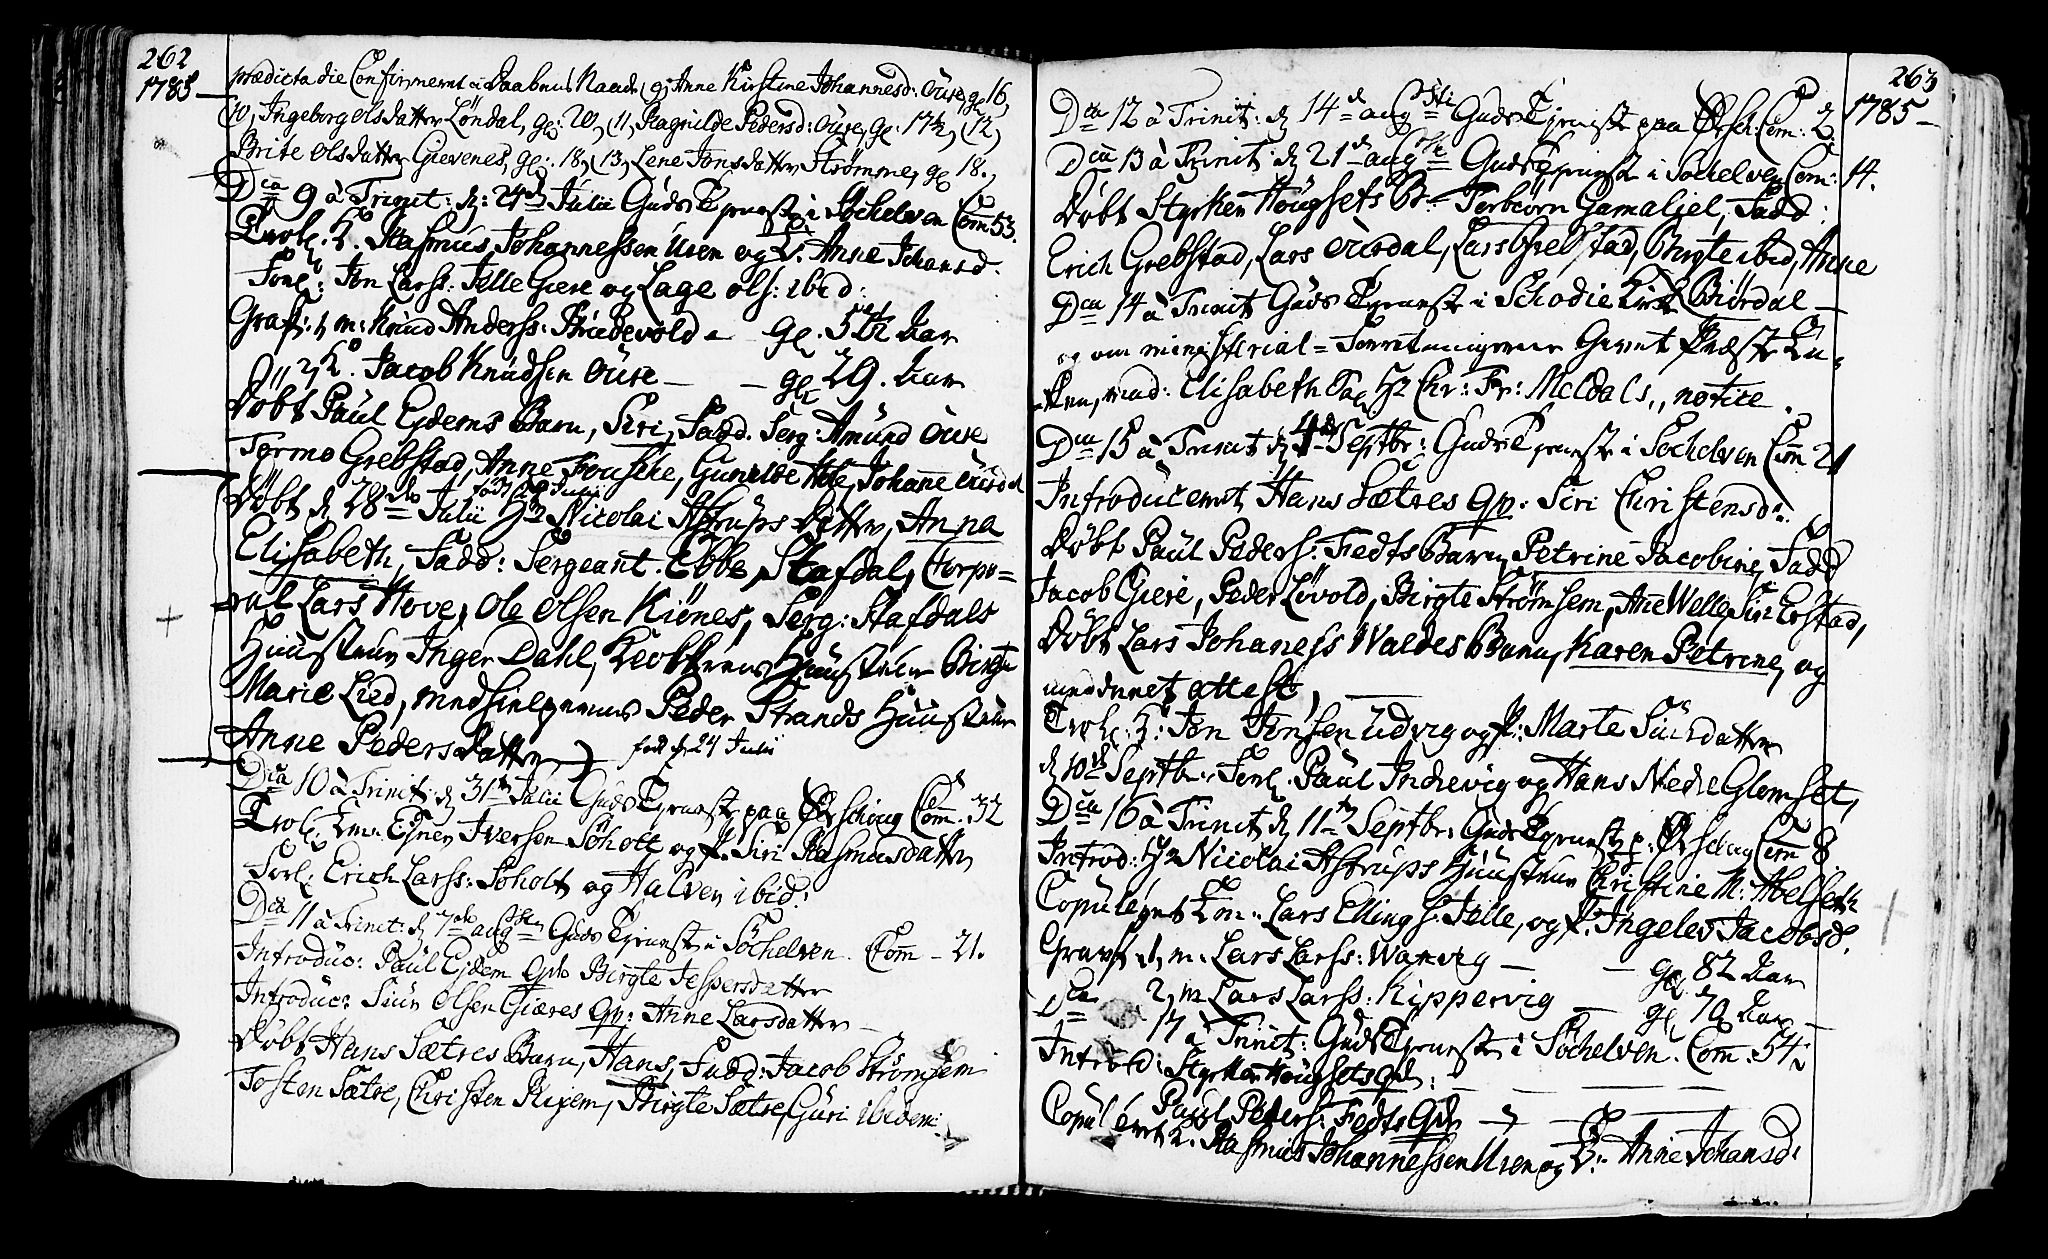 262
1785
prædicta die Confirmeret i Daabens Naade 9, Anne Kirstine Johannesd: Ouse, gl 16,
10, Ingeborg Olsdatter Löndal, gl: 20, 11, Ragnilde Pedersd: Ouse, gl: 17½, 12,
Brite Olsdatter Gievenes, gl: 18, 13, Lene Jonsdatter Strömme, gl 18.
Dca 9 à Trinit: d: 24de Julii Guds Tieneste i Söchelven Com: 53.
Trol: K. Rasmus Johannessen Uren og P: Anne Johansd.
Forl: Jon Larss: Telle Giere og Lage Ols: ibid:
Graf: 1, m: Knud Anderss: Bridevold - gl. 5½ Aar
2, K: Jacob Knudsen Ouse - gl 29. Aar
Döbt Paul Ejdems Barn, Siri, Fadd. Serg: Amund Ouse
Tormo Grebstad, Anne Frousche, Gunilde Hole, Johane Aurdal
Döbt d 28de Julii Hr Nicolai Astrups Datter, Anna
Elisabeth, Fadd: Sergeant Ebbe Stafdal, Corpo=
ral Lars Hove, Ole Olsen Kiönes, Serg: Stafdals
Huustrue Inger Dahl, Klokkerens Huustrue Birgte
Marie Lied, medhielperens Peder Strands Huustrue
Anne Pedersdatter
föd d 24 Julii
Dca 10 à Trinit: d 31te Julii Guds Tieneste paa Ørschoug Com. 32
Trol: Em: Ejner Iversen Söholt og P. Siri Rasmusdatter
Forl: Erich Larss: Soholt og Halven ibid:
Dca 11 à Trinit: d 7de augsti Guds Tieneste i Söchelven. Com - 21.
Introduc: Paul Ejdem Qde Birgte Jespersdatter
Introduc: Siur Olsen Giæres Qv: Anne Larsdatter -
Döbt Hans Sætres Barn, Hans, Fadd: Jacob Strömsem
Tosten Sætre, Christen Rixem, Birgte Sætre, Guri ibidem:
263
1785
Dca 12 à Trinit: d 14de augsti Guds Tieneste paa Ørsch: Com: 2.
Dca 13 à Trinit: d 21de augsti Guds Tieneste i Söchelven Com: 14.
Döbt Styrker Hougsets B: Torbiörn Gamaliel, Fadd:
Erich Grebstad, Lars Aurdal, Lars Grebstad, Birgte ibid, Anne
Dca 14 à Trinit Guds Tieneste i Schodie Kirke Biördal -
og om ministerial = Forretningerne Præste En=
ken, mad: Elisabeth Sal Hr Chr: Fr: Meldals, notice.
Dca 15 à Trinit d 4de Septbr: Guds Tieneste i Söchelven Com 21
Introduceret Hans Sætres Qv: Siri Christensd:
Döbt Paul Peders: Fedts Barn, Petrine Jacobine, Fadd
Jacob Giere, Peder Lövold, Birgte Strömsem, Ane Welle, Siri Erstad,
Döbt Lars Johaness Waldes Barn, Karen Petrine, og
attest,
Trol: K: Jon Jonsen Udvig og P: Marte Siursdatter
d 10de Septbr: Forl: Paul Indrevig og Hans Nedre Glomset,
Dca 16 à Trinit d 11te Septbr: Guds Tieneste p. Ørschoug Com 8
Introd: Hr Nicolai Astrups Huustrue Christine M: Abelseth
Copuleret Em: Lars Ellings: Telle, og P. Ingeleo Jacobsd.
Gravf 1, m: Lars Larss: Warvig - gl 82 Aar
2, m Lars Larss: Kippervig - gl 70 Aar
Dca 17 à Trinit: Guds Tieneste i Söchelven. Com. 54
Introd: Styrker Hougsets Qde:
Paul Peders: Fedts Qde
Copuleret K. Rasmus Johannessen Uren og P: Anne Johansd: